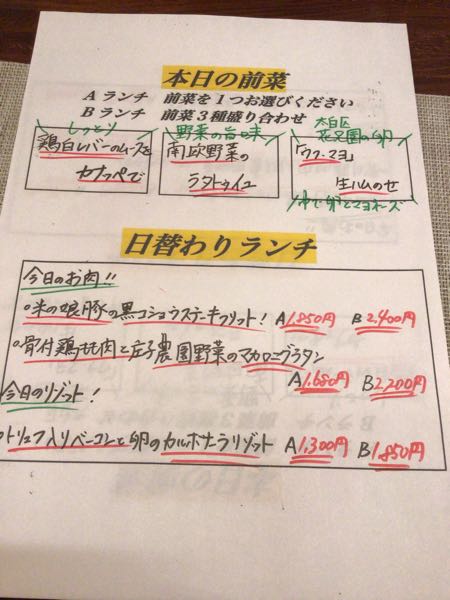 本日の前菜
Aランチ 前菜を1つお選びください
Bランチ 前菜3種盛り合わせ
しっとり
鶏白レバームースを
カナッペで
野菜の旨味
南欧野菜の
ラタトゥイユ
太白区
花兄園の卵
「ウフ・マヨ」
生ハムのせ
ゆで卵とマヨネーズ
日替わりランチ
今日のお肉!!
○米の娘豚の黒コショウステーキフリット! A1,850円 B2,400円
○骨付鶏もも肉と庄子農園野菜のマカロニグラタン
A1,680円 B2,200円
今日のリゾット!
○トリュフ入りベーコンと卵のカルボナーラリゾット A1,300円 B1,850円